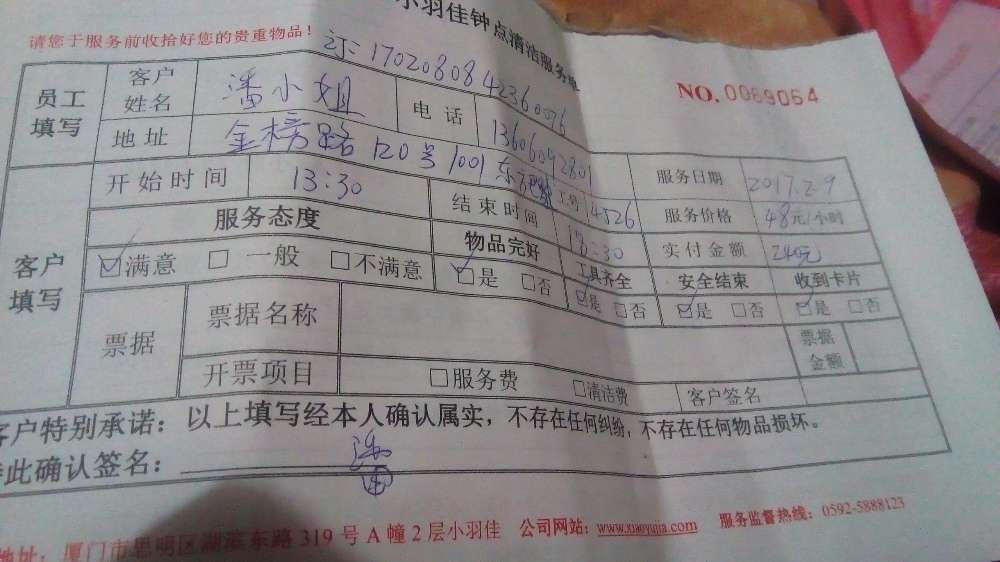 小羽佳钟点清洁服务单
请您于服务前收拾好您的贵重物品！
订:1702080842360076
NO.0069064
员工填写 客户姓名 潘小姐 电话 13606092801 服务日期 2017.2.9
地址 金榜路120号1001 工号 14526 服务价格 48元/小时
开始时间 13:30 结束时间 18:30 实付金额 240元
客户填写 服务态度 物品完好 工具齐全 安全结束 收到卡片
☑满意 □一般 □不满意 ☑是 □否 ☑是 □否 ☑是 □否 ☑是 □否
票据 票据名称 票据金额
开票项目 □服务费 □清洁费 客户签名
客户特别承诺：以上填写经本人确认属实，不存在任何纠纷，不存在任何物品损坏。
此确认签名： 潘
地址：厦门市思明区湖滨东路319号A幢2层小羽佳 公司网站：www.xiaoyujia.com 服务监督热线：0592-5888123